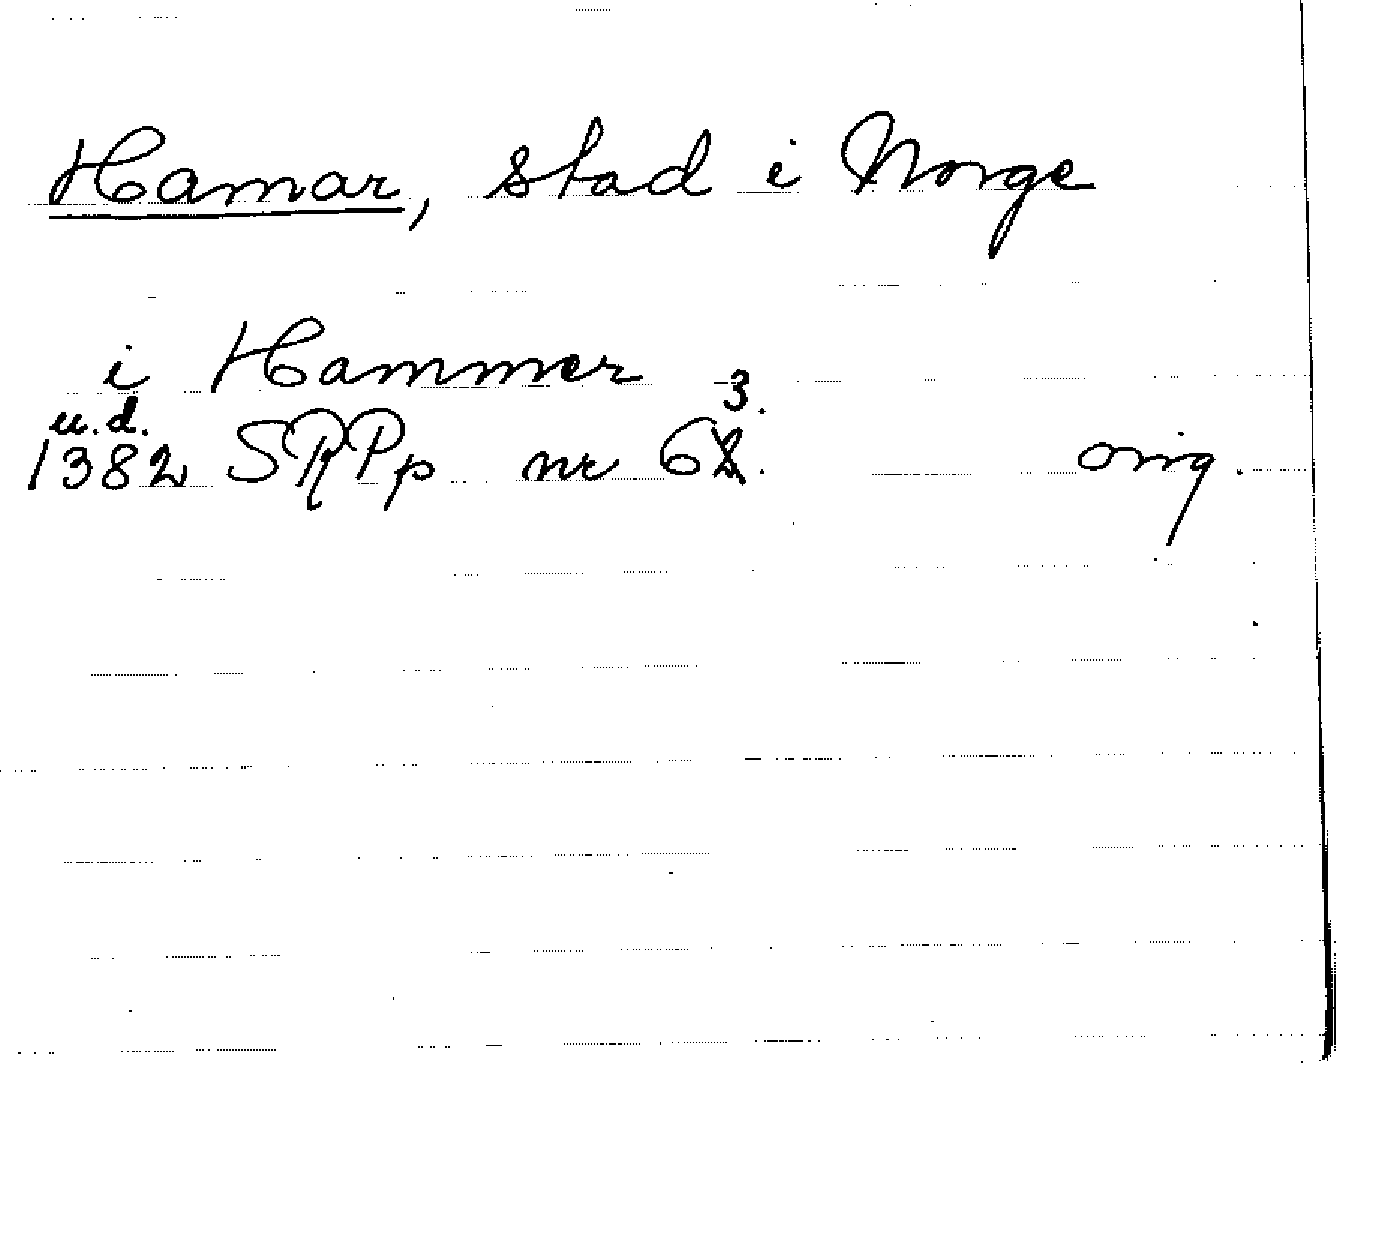 Hamar, stad i Norge
i Hammer
u.d. 3.
1382 SRPp nr 62. orig.